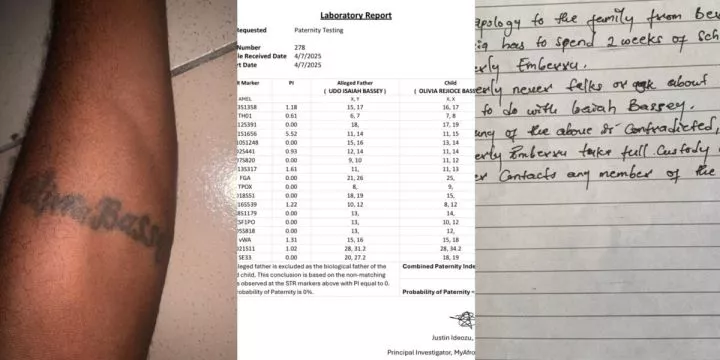 Bassey
Laboratory Report
equested Paternity Testing
Number 278
le Received Date 4/7/2025
rt Date 4/7/2025
R Marker PI Alleged Father Child
( UDO ISAIAH BASSEY ) ( OLIVIA REJIOCE BASS
AMEL X, Y X, X
3S1358 1.18 15, 17 16, 17
TH01 0.61 6, 7 7, 8
12S391 0.00 18, 17, 19
1S1656 5.52 11, 14 11, 15
10S1248 0.00 15, 16 13, 14
02S441 0.93 12, 14 11, 14
07S820 0.00 9, 10 11, 12
13S317 1.61 11, 11, 13
FGA 0.00 21, 26 25,
TPOX 0.00 8, 9,
018S51 0.00 18, 19 15,
16S539 1.22 10, 12 8, 12
8S1179 0.00 13, 14,
CSF1PO 0.00 13, 10, 12
05S818 0.00 13, 12,
vWA 1.31 15, 16 15, 18
021S11 1.02 28, 31.2 28, 34.2
SE33 0.00 20, 27.2 18, 19
leged father is excluded as the biological father of the
d child. This conclusion is based on the non-matching
s observed at the STR markers above with PI equal to 0.
robability of Paternity is 0%.
Combined Paternity Inde
Probability of Paternity =
Justin Ideozu,
Principal Investigator, MyAfro
apology to the family from Bev
has to spend 2 weeks of Sch
erly Emberru.
erly never talks or ask about
to do with Isaiah Bassey.
of the above is Contradicted,
erly Emberru take full Custody
er Contacts any member of the